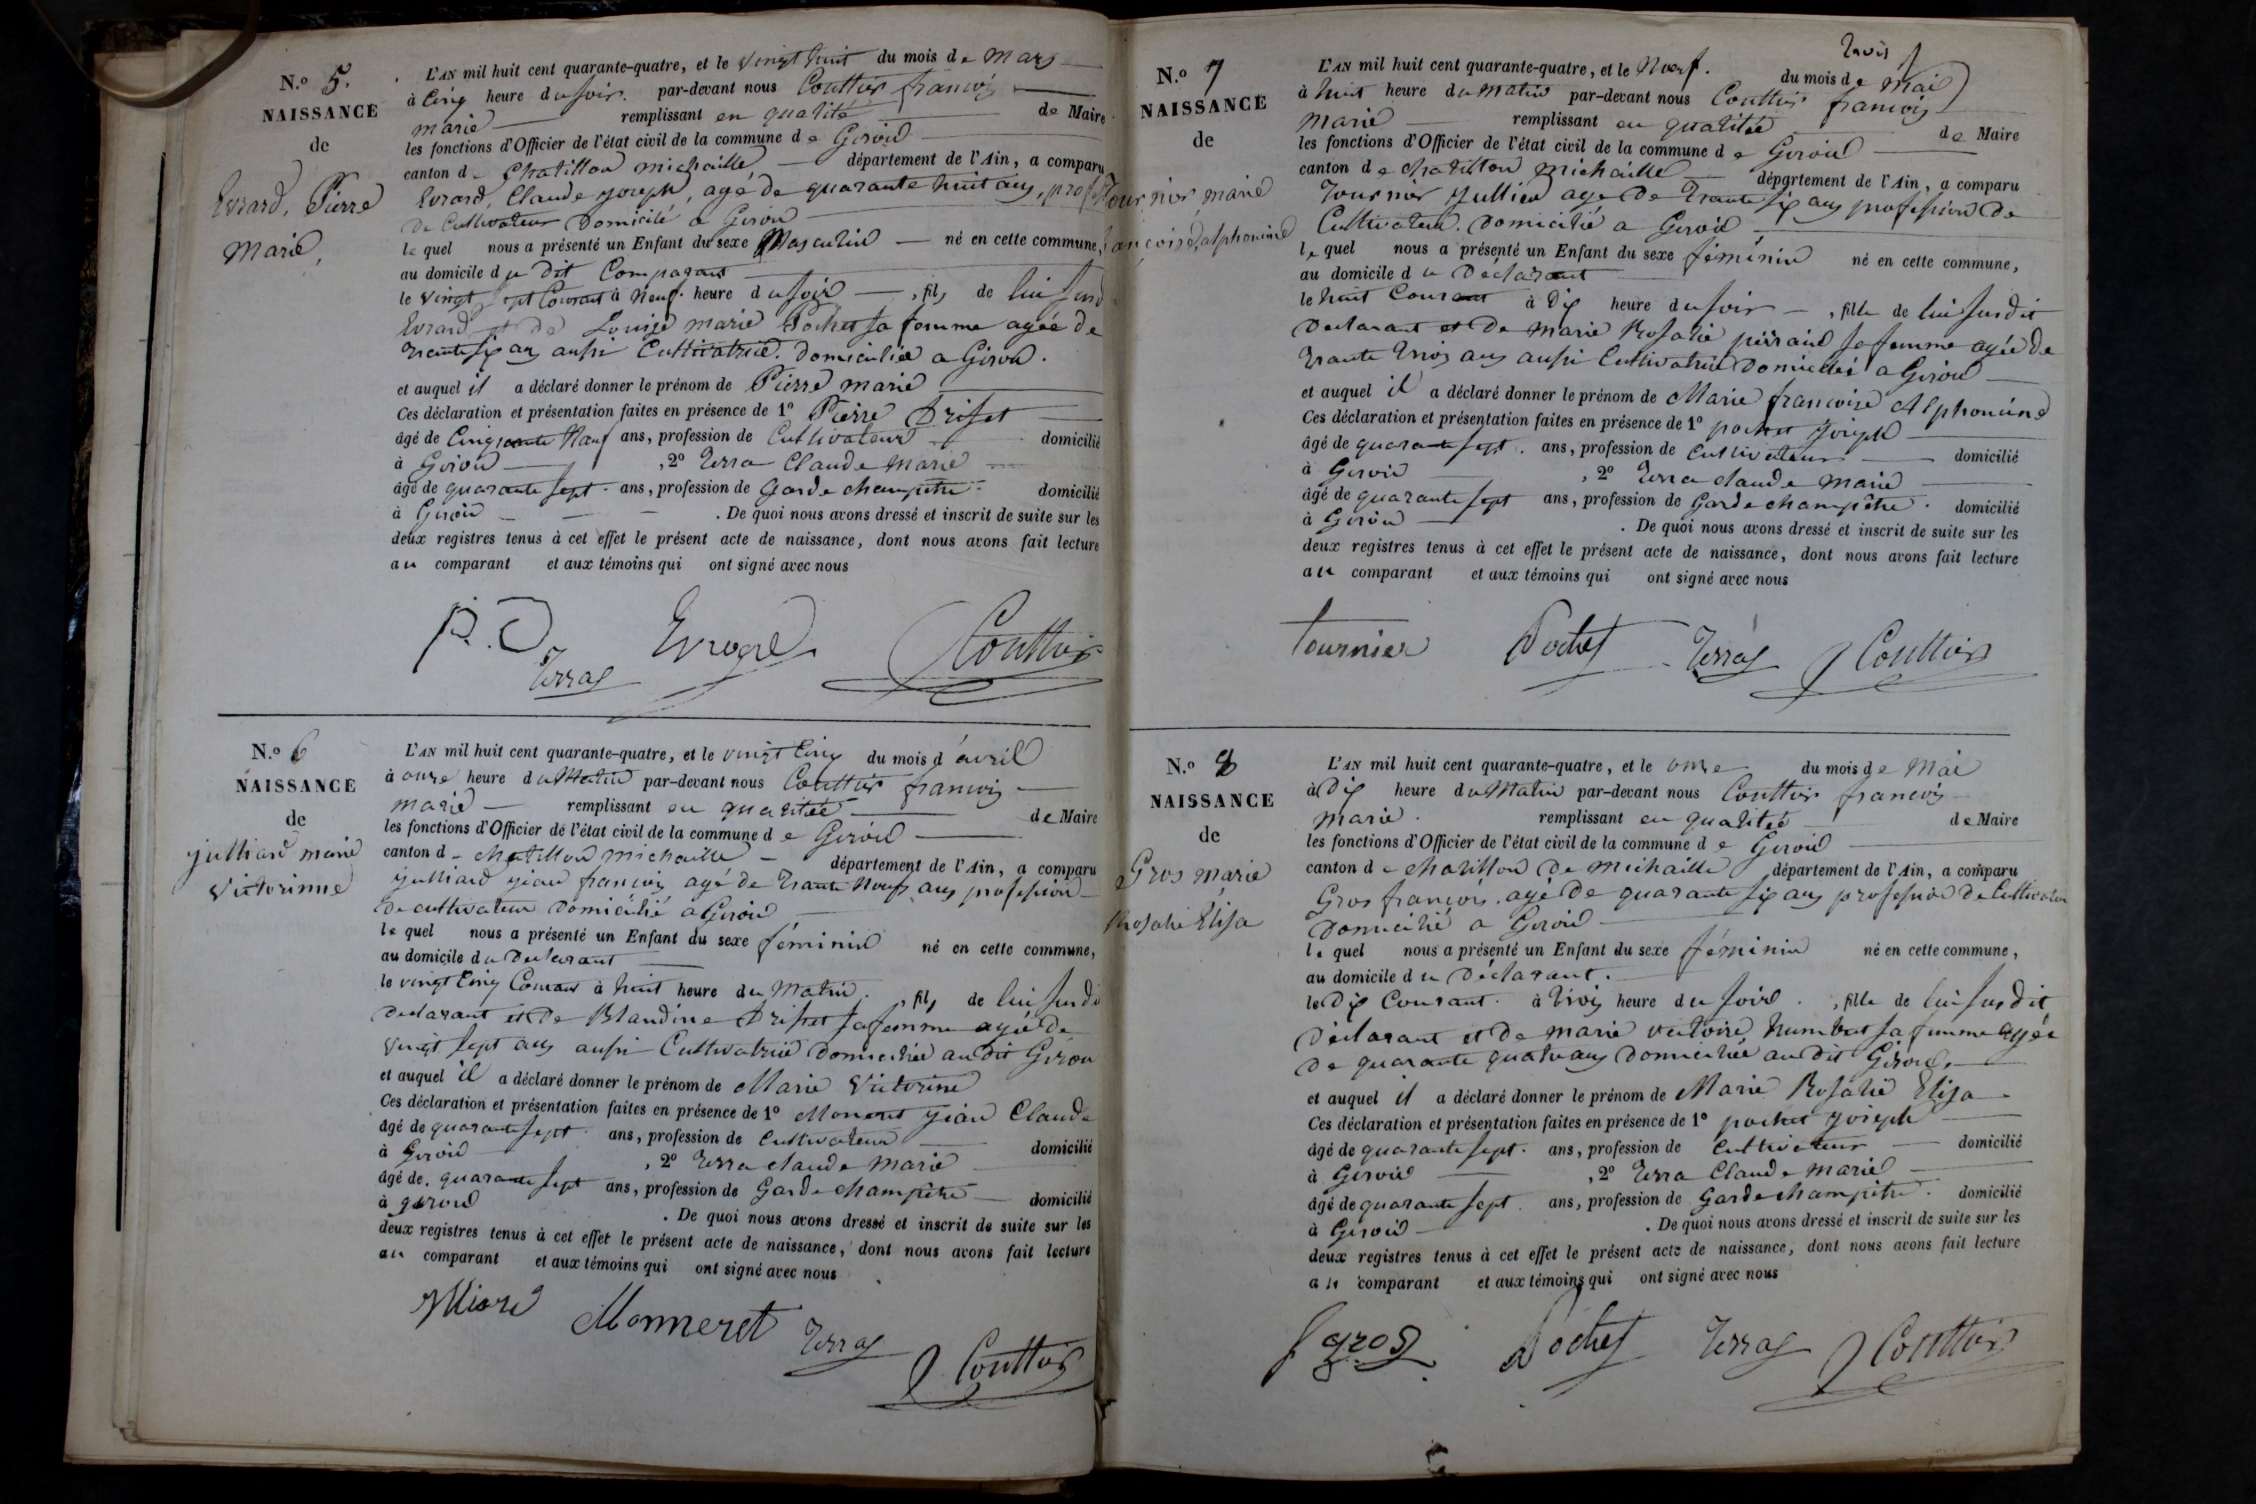 N.o 5.
NAISSANCE
de
Evrard, Pierre
Marie,
L'AN mil huit cent quarante-quatre, et le vingt huit du mois de Mars
à Cinq heure du soir. par-devant nous Couttier françois
marie remplissant en qualité de Maire
les fonctions d'Officier de l'état civil de la commune de Giron
canton d Chatillon michaille département de l'Ain, a comparu
Evrard, Claude joseph, agé de quarante huit ans, prof
De Cultivateur Domicilé a Giron
le quel nous a présenté un Enfant du sexe Masculin né en cette commune,
au domicile du Dit Comparant
le vingt sept Courant à Neuf heure du soir , fils de lui susd
Evrard et de Louise marie Pochet sa femme agée de
trante six ans aussi Cultivatrice. Domiciliée a Giron.
et auquel il a déclaré donner le prénom de Pierre marie
Ces déclaration et présentation faites en présence de 1o Pierre Driset
âgé de Cinquante Neuf ans, profession de Cultivateur domicilié
à Giron , 2o Terra Claude Marie
âgé de quarante sept ans, profession de Garde champetre domicilié
à Giron . De quoi nous avons dressé et inscrit de suite sur les
deux registres tenus à cet effet le présent acte de naissance, dont nous avons fait lecture
au comparant et aux témoins qui ont signé avec nous
P. D Evrard Couttier
Terraz
N.o 6
NAISSANCE
de
julliard marie
Victorinne
L'AN mil huit cent quarante-quatre, et le vingt Cinq du mois d'avril
à onze heure du Matin par-devant nous Couttier françois
marie remplissant en qualitée de Maire
les fonctions d'Officier de l'état civil de la commune de Giron
canton d chatillon michaille département de l'Ain, a comparu
julliard jean françois agé de trante Neuf ans profession
De cultivateur Domicilié a Giron
le quel nous a présenté un Enfant du sexe féminin né en cette commune,
au domicile du Declarant
le vingt Cinq Courant à huit heure du Matin. , fils de lui susdi
Declarant et De Blandine Driset sa femme agée de
vingt sept ans aussi Cultivatrice Domiciliée au dit Giron
et auquel il a déclaré donner le prénom de Marie Victorine
Ces déclaration et présentation faites en présence de 1o Moneret jean Claude
âgé de quarante sept ans, profession de Cultivateur domicilié
à Giron , 2o Terra claude Marie
âgé de quarante sept ans, profession de Garde champetre domicilié
à giron . De quoi nous avons dressé et inscrit de suite sur les
deux registres tenus à cet effet le présent acte de naissance, dont nous avons fait lecture
au comparant et aux témoins qui ont signé avec nous
Monneret Terraz Couttier
N.o 7
NAISSANCE
de
Tournier marie
françoise, alphonsine
L'AN mil huit cent quarante-quatre, et le Neuf. du mois de Mai
à huit heure du Matin par-devant nous Couttier françois
Marie remplissant en qualitée de Maire
les fonctions d'Officier de l'état civil de la commune de Giron
canton de chatillon Michaille département de l'Ain, a comparu
Tournier jullien age De Trante six ans profession De
Cultivateur. Domicilié a Giron
le quel nous a présenté un Enfant du sexe féminin né en cette commune,
au domicile du Déclarant
le huit Courant à Dix heure du soir , fille de lui susdit
Declarant et De Marie Rosalie sa femme agée De
trante trois ans aussi Cultivatrice Domiciliée a Giron
et auquel il a déclaré donner le prénom de Marie françoise Alphonsine
Ces déclaration et présentation faites en présence de 1o pochet joseph
âgé de quarante sept. ans, profession de Cultivateur domicilié
à Giron , 2o Terra claude Marie
âgé de quarante sept ans, profession de Garde champêtre. domicilié
à Giron . De quoi nous avons dressé et inscrit de suite sur les
deux registres tenus à cet effet le présent acte de naissance, dont nous avons fait lecture
au comparant et aux témoins qui ont signé avec nous
Tournier Pochet Terraz Couttier
N.o 8
NAISSANCE
de
Gros marie
Rosalie Elisa
L'AN mil huit cent quarante-quatre, et le onze du mois de Mai
à Dix heure du Matin par-devant nous Couttier françois
Marie. remplissant en qualitée de Maire
les fonctions d'Officier de l'état civil de la commune de Giron
canton de chatillon De michaille département de l'Ain, a comparu
Gros françois. agé De quarante six ans profession De Cultivateur
Domicilié a Giron
le quel nous a présenté un Enfant du sexe féminin né en cette commune,
au domicile du Déclarant.
le Dix Courant. à trois heure du soir. , fille de lui susdit
Déclarant et De marie victoire humbert sa femme agée
De quarante quatre ans Domiciliée au dit Giron.
et auquel il a déclaré donner le prénom de Marie Rosalie Elisa
Ces déclaration et présentation faites en présence de 1o pochet joseph
âgé de quarante sept. ans, profession de Cultivateur domicilié
à Giron , 2o Terra Claude Marie
âgé de quarante sept ans, profession de Garde champêtre. domicilié
à Giron . De quoi nous avons dressé et inscrit de suite sur les
deux registres tenus à cet effet le présent acte de naissance, dont nous avons fait lecture
au comparant et aux témoins qui ont signé avec nous
f gros Pochet Terraz Couttier